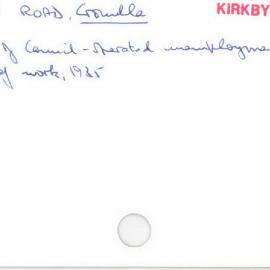 ROAD, Cronulla KIRKBY
of Council-operated unemployme
of work, 1935